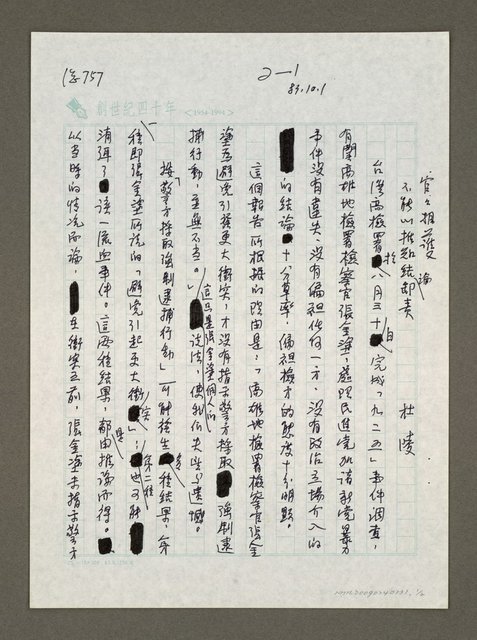 信757
2—1
83.10.1
創世紀四十年 <1954-1994>
官官相護
不能以推論結卸責
杜陵
台灣高檢署於八月三十日完成「九二五」事件調查，
有關高雄地檢署檢察官張金塗，處理民進黨加諸新黨暴力
事件沒有違失、沒有偏袒任何一方、沒有政治立場介入的
的結論，十分草率，偏袒檢方的態度十分明顯。
這個報告所根據的理由是：「高雄地檢署檢察官張金
塗為避免引發更大衝突，才沒有指示警方採取強制逮
捕行動，並無不當。」這只是張金塗個人的說法，使我們失望與遺憾。
按警方採取強制逮捕行動，可能發生兩種結果，第一
種即張金塗所說的「避免引起更大衝突」；第二種也可能
消弭了該一流血事件。這兩種結果，都是由推論而得。
以當時的情況而論，在衝突之前，張金塗未指示警方